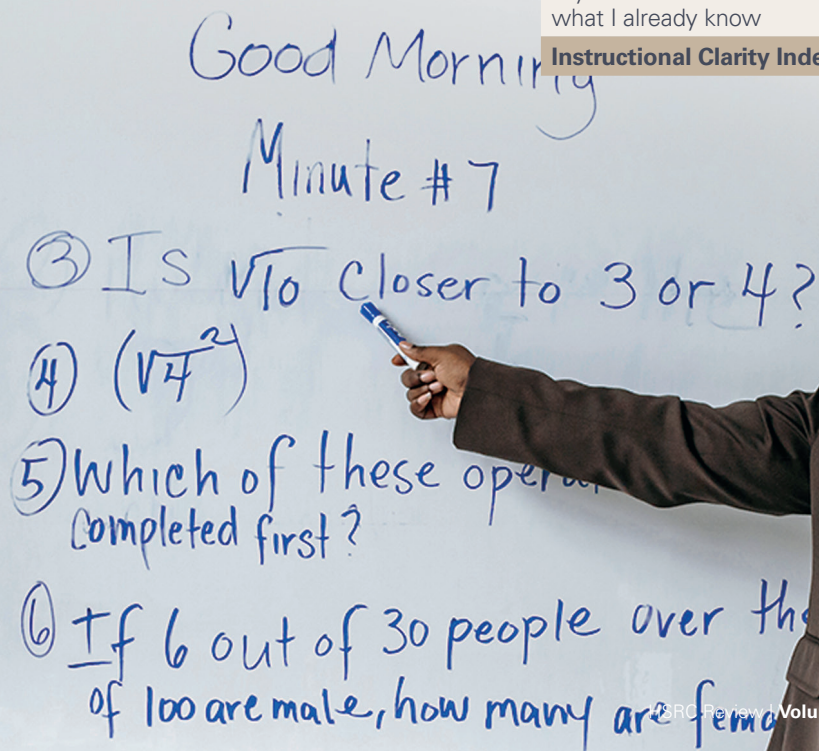 what I already know
Instructional Clarity Inde
Good Morning
Minute #7
③ Is √10 closer to 3 or 4?
④ (√4²)
⑤ Which of these opera
completed first?
⑥ If 6 out of 30 people over the
of 100 are male, how many are fema
HSRC Review | Volu